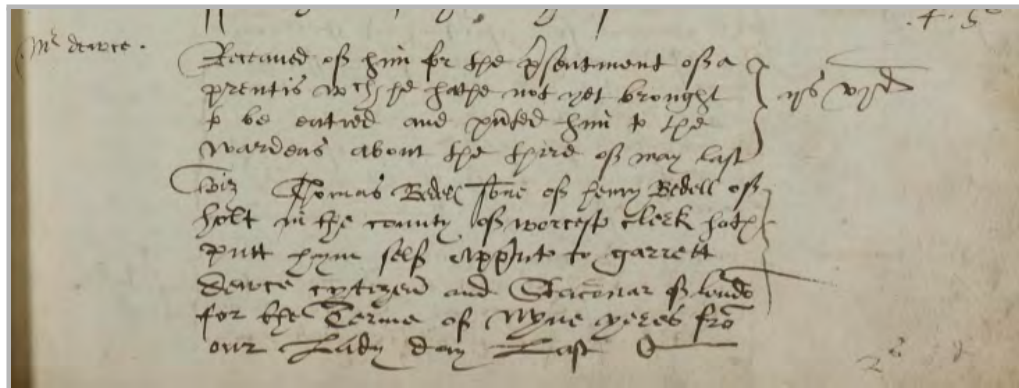 Mr dewce .
Receaued of him for the p̄sentment of a
prentis wch he hathe not yet brought ijs vjd
to be entred and p̄nted him to the
wardens about the third of may last
viz Thomas Bedell sone of henry Bedell of
holt in the county of worcestr clerk hath
putt hym self App̄nt to garrett
dewce cytezen and Staconar of londō
for the Terme of Nyne yeres frō
our Lady day Last